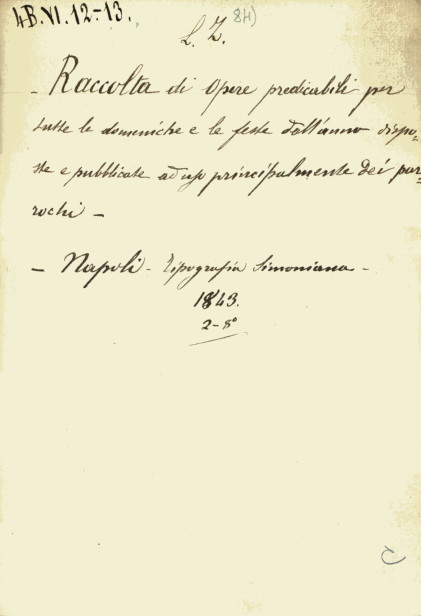 4B.VI.12-13. 84)
L. Z.
- Raccolta di Opere predicabili per
tutte le domeniche e le feste dell'anno dispo=
ste e pubblicate ad uso principalmente dei par=
rochi -
- Napoli - Tipografia Simoniana -
1843.
2-8°
C